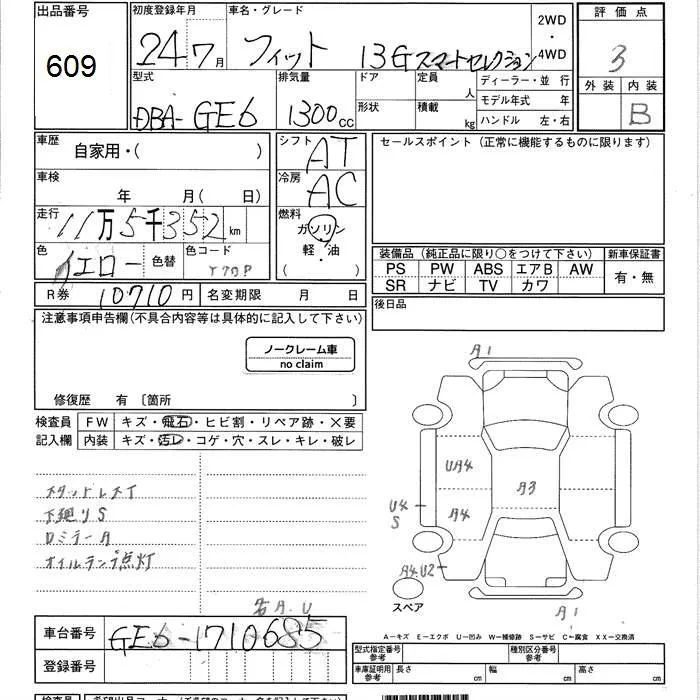 出品番号
609
初度登録年月
24 7月
車名・グレード
フィット 13G スマートセレクション
2WD
・
4WD
評価点
3
外装 内装
B
型式
DBA-GE6
排気量
1300cc
ドア
形状
定員
人
積載
kg
ディーラー・並 行
モデル年式 年
ハンドル 左・右
車歴
自家用・( )
シフト
AT
セールスポイント (正常に機能するものに限ります)
車検
年 月( 日)
冷房
AC
走行
11万5千352km
燃料
ガソリン
軽・油
( )
色
イエロー
色替
色コード
Y70P
装備品 (純正品に限り○をつけて下さい)
新車保証書
PS PW ABS エアB AW
SR ナビ TV カワ
有・無
R券 10710円
名変期限 月 日
後日品
注意事項申告欄(不具合内容等は具体的に記入して下さい)
ノークレーム車
no claim
修復歴 有 〔箇所 〕
検査員
記入欄
FW キズ・飛石・ヒビ割・リペア跡・×要
内装 キズ・汚レ・コゲ・穴・スレ・キレ・破レ
スタッドレスT
下廻りS
ロミラーA
オイルランプ点灯
右A.U
A1
UA4
A3
A4
U4
S
A4.U2
スペア
A1
A－キズ E－エクボ U－凹み W－補修跡 S－サビ C－腐食 XX－交換済
車台番号
GE6-1710685
登録番号
型式指定番号
参考
種別区分番号
参考
車庫証明用
参考
長さ cm
幅 cm
高さ cm